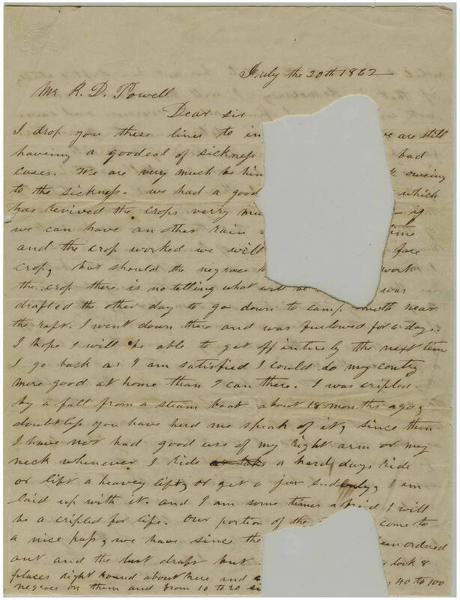 July the 20th 1862
Mr. R. D. Powell
Dear sir
I drop you these lines to in we are still
haveing a good eal of sickness bad
cases. We are very much be hin oweing
to the sickness. we had a good which
has revived the crops verry mu if
we can have an other rain time
and the crop worked we will fare
crop, but should the negroes work
the crop there is no telling what will was
drafted the other day to go down to camp near
the raft. I went down there and was furloued for days.
I hope I will be able to get off intirely the next time
I go back as I am satisfied I could do my contry
more good at home than I can there. I was cripled
by a fall from a steam boat about 18 months ago,
doubtless you have herd me speak of it, since then
I have not had good use of my right arm or my
neck whenever I ride a hard days ride
or lift a heavey lift, or get a jur suddenly, I am
laid up with it. and I am some times afraid I will
be a cripled for life. Our portion of the come to
a nice pass, we have since the en ordered
out and the last draft but took 8
places right round about here and 40 to 100
negroes on them and from 10 to